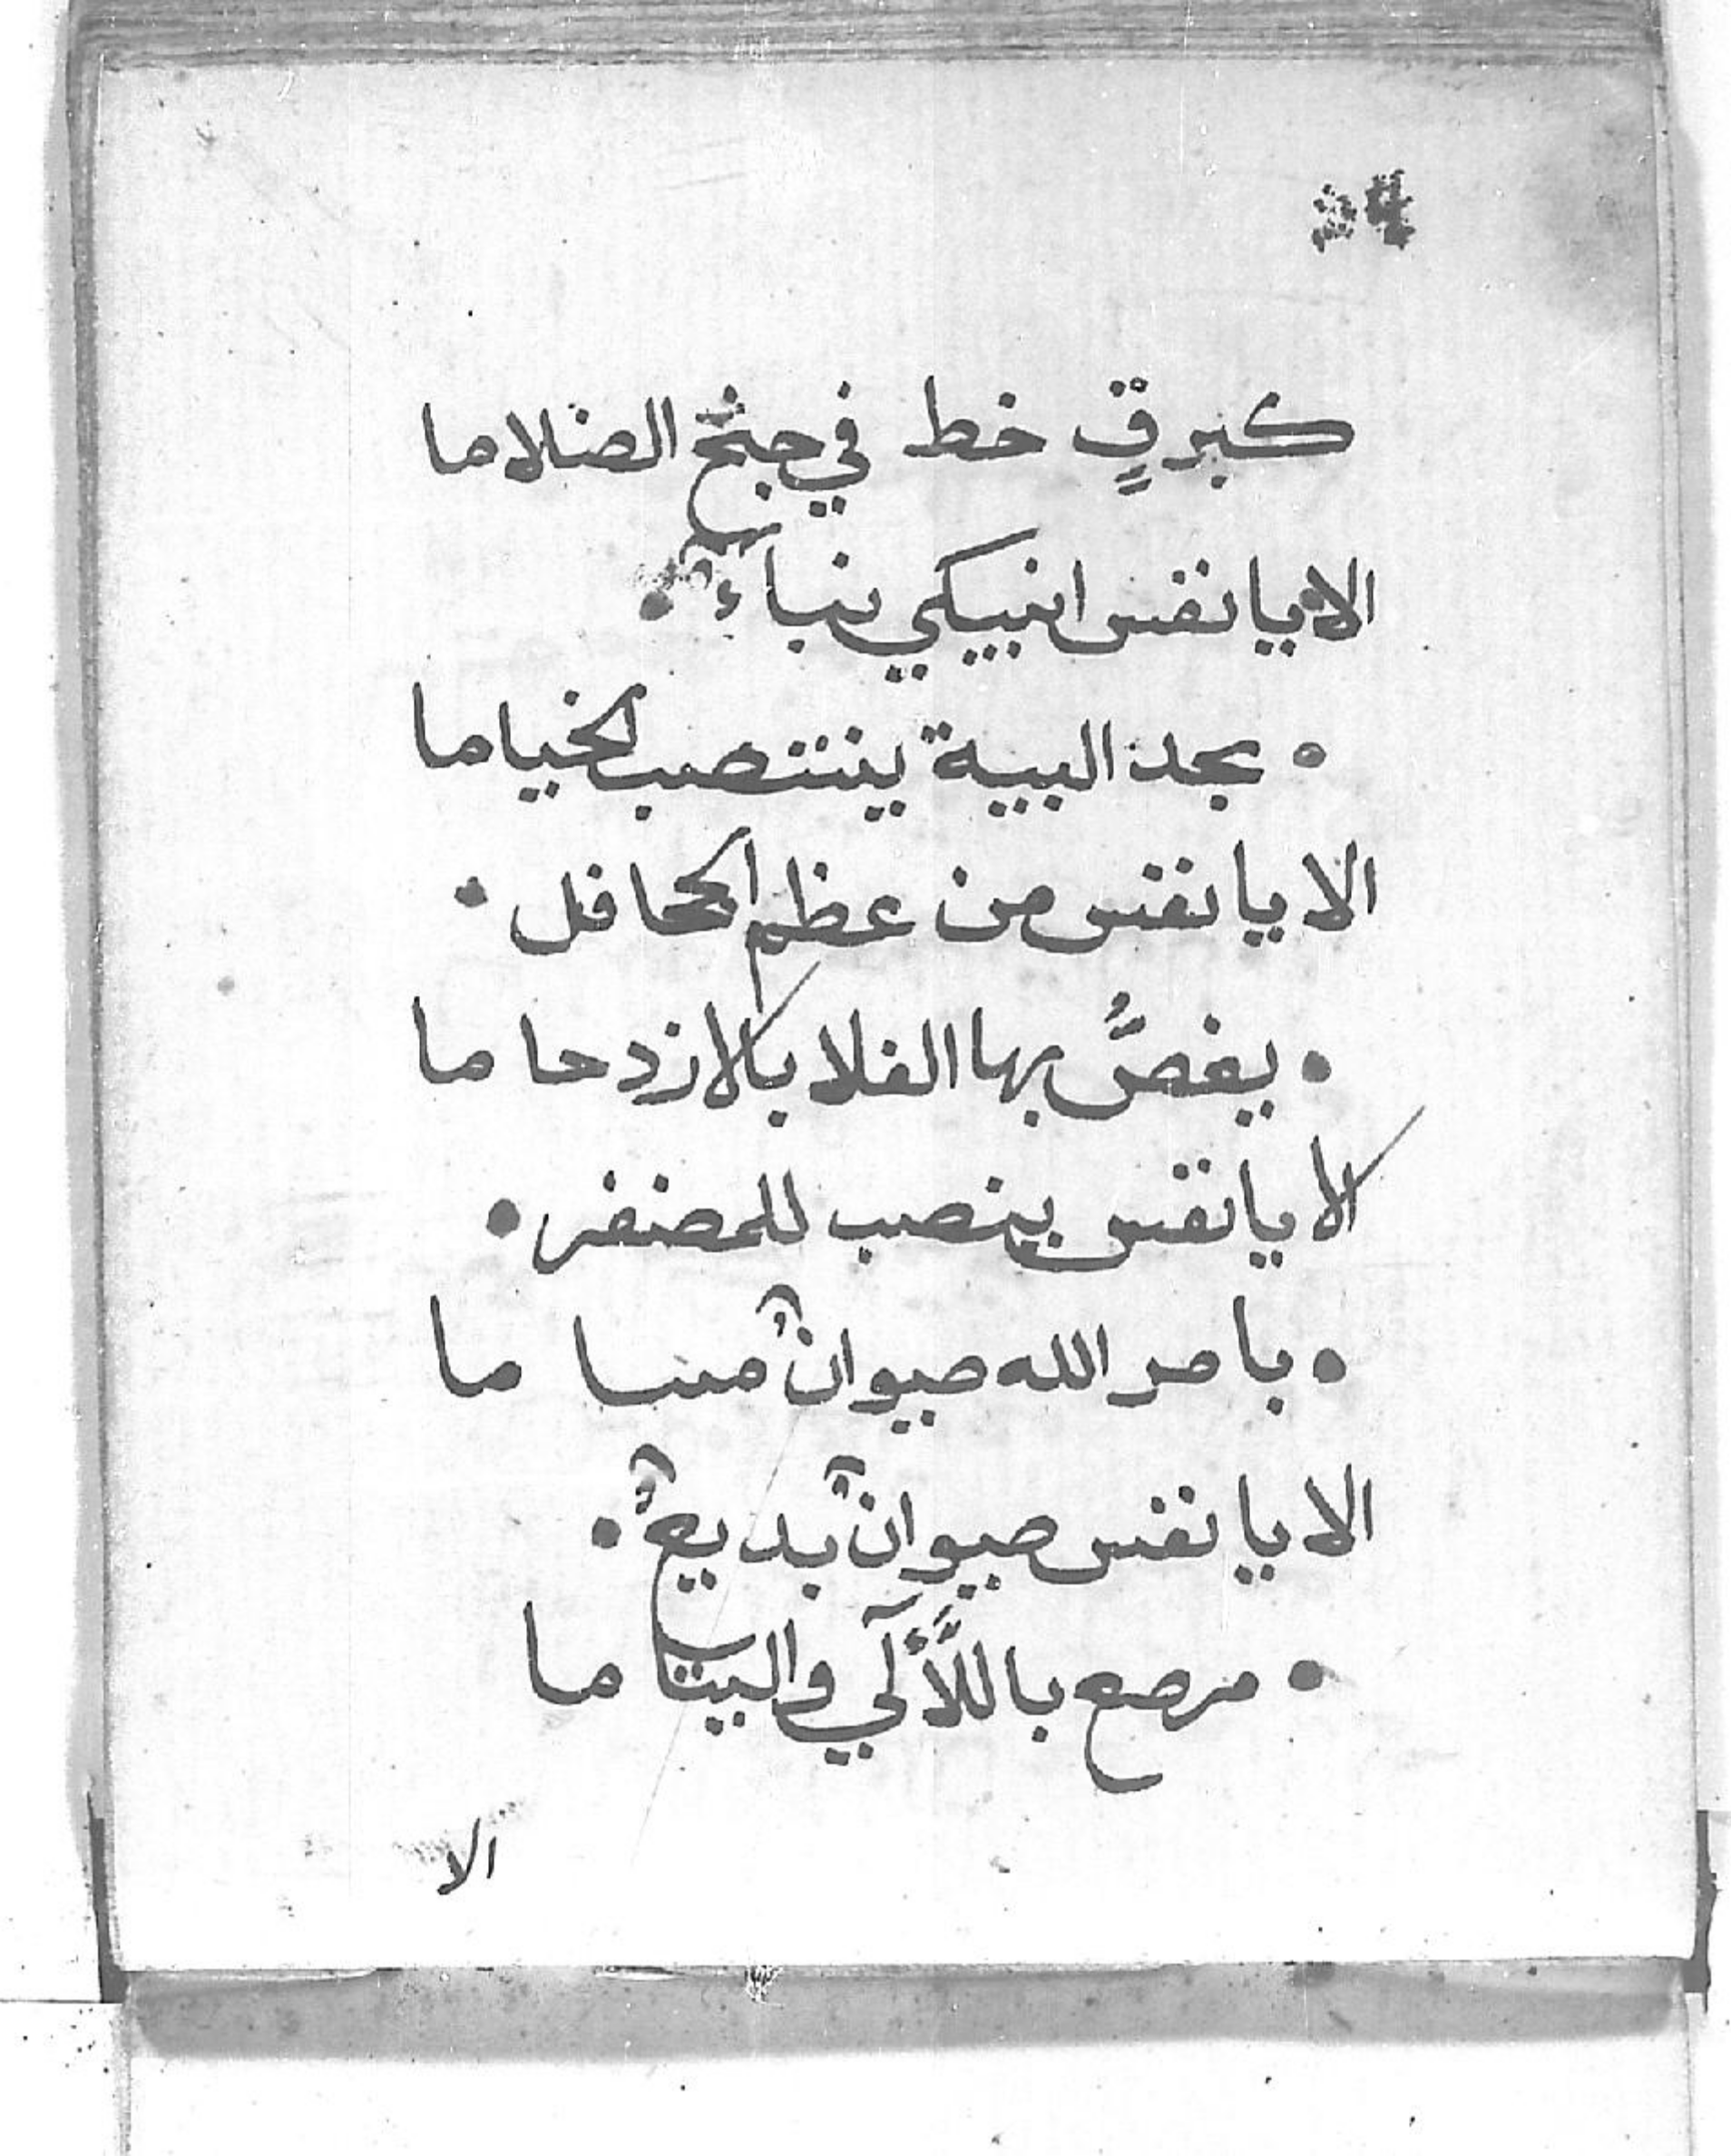 كبرقٍ خط في جنح الضلاما
الا يا نفس انبيكي بنباء •
• بحد البيية ينتصب الخياما
الا يا نفس من عظم الجحافل •
• يغصُّ بها الفلا بالازدحاما
الا يا نفس ينصب للمضفر •
• بامر الله صيوانٌ مسا ما
الا يا نفس صيوانٌ بديعٌ •
• مرصع باللَّألي واليتاما
الا